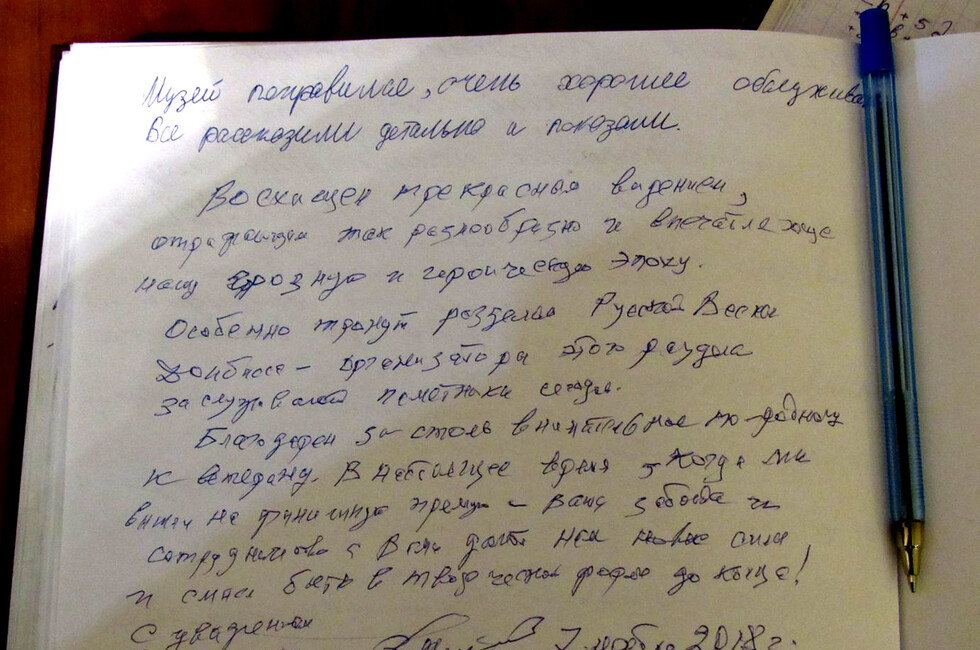 Музей понравился, очень хорошее обслужива
Все рассказали детально и показали.
Восхищен прекрасная видением,
так разнообразно и впечатляюще
нашу грозную и героическую эпоху.
Особенно тронут разделом Русской Весны
Донбасса – организаторы этого раздела
заслуживают
Благодарен за столь внимательное по-доброму
к ветерану. В настоящее время, когда мы
на финишную прямую – Ваша забота и
сотрудничество с Вами новые силы
и быть в творческой форме до конца!
С уважением
7 ноября 2018 г.